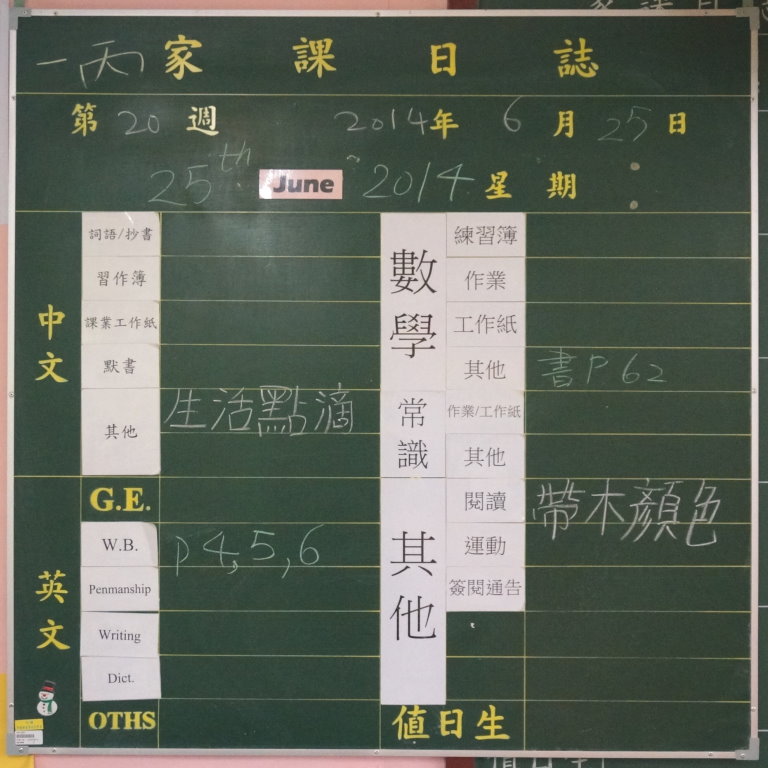 一丙 家課日誌
第 20 週 2014年 6月 25日
25th June 2014 星期
中文
詞語/抄書
習作簿
課業工作紙
默書
其他 生活點滴
英文
G.E.
W.B. p 4,5,6
Penmanship
Writing
Dict.
OTHS
數學
練習簿
作業
工作紙
其他 書P 62
常識
作業/工作紙
其他
其他
閱讀 帶木顏色
運動
簽閱通告
值日生